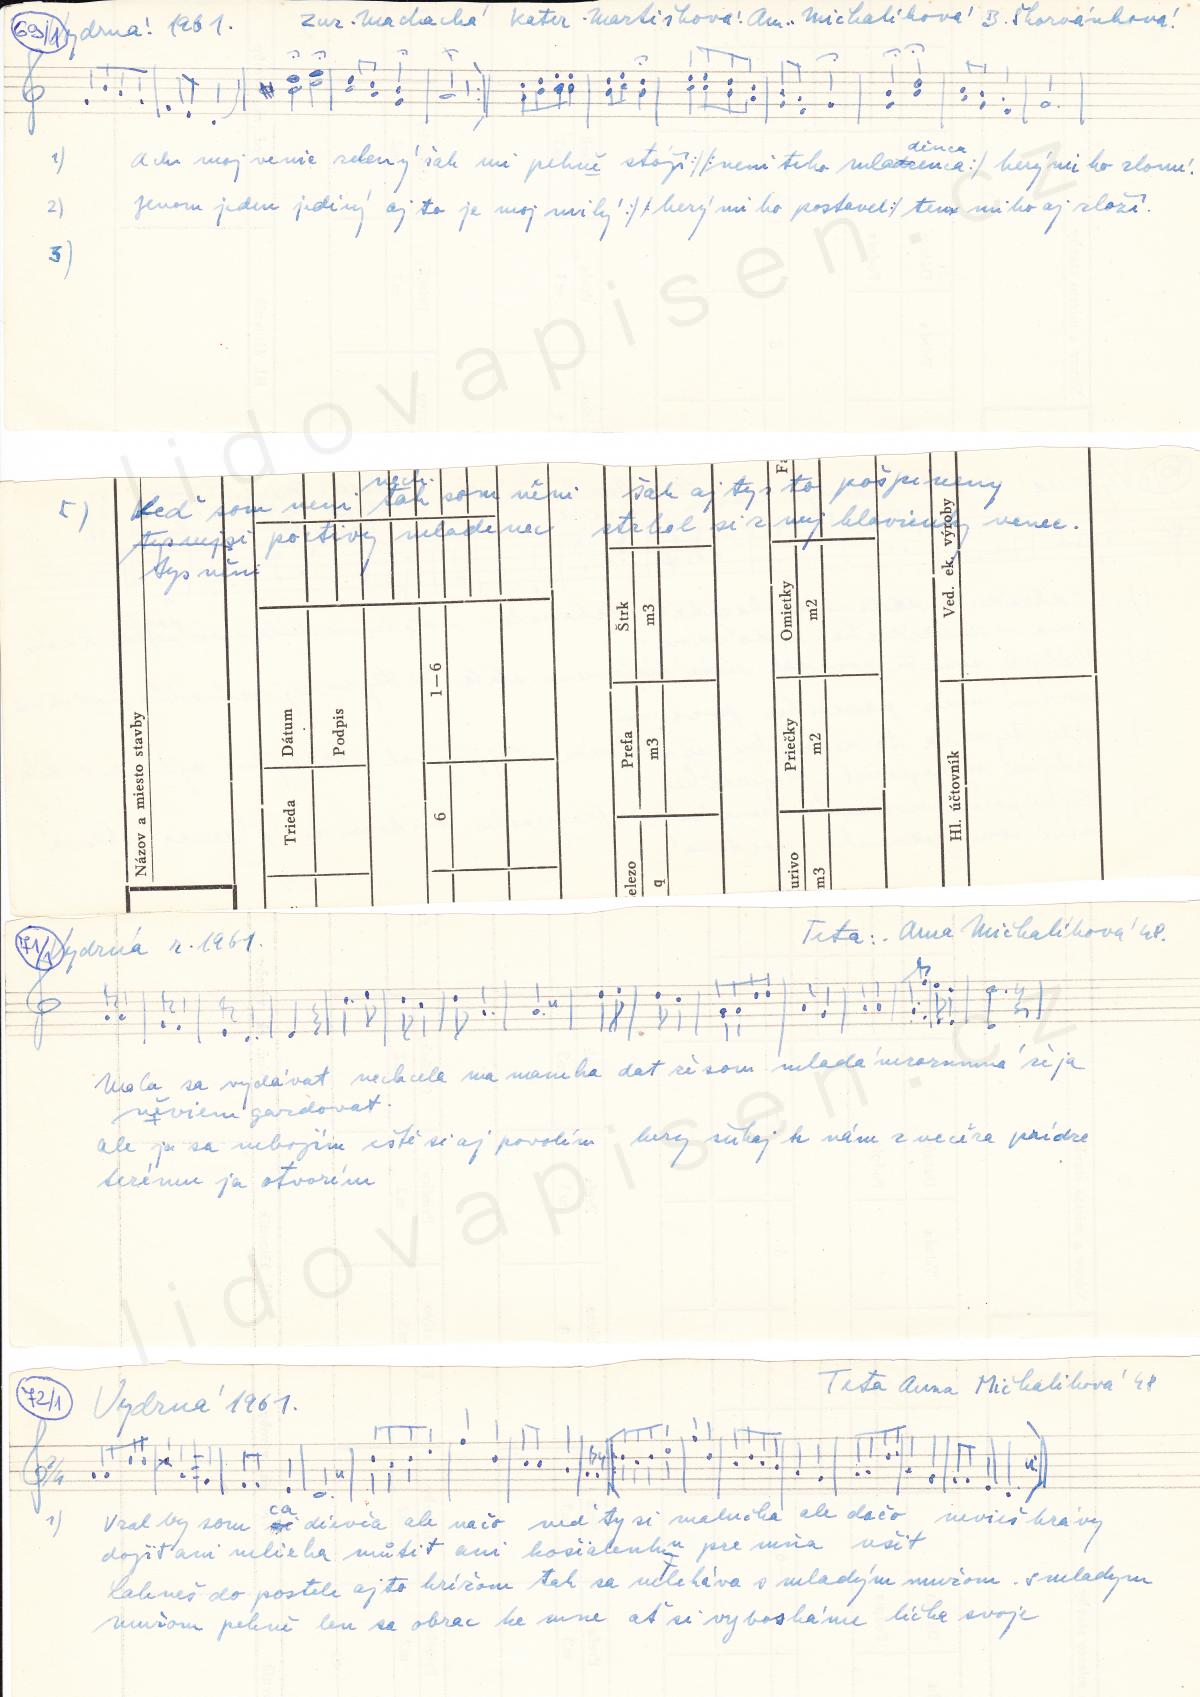 69/1 Vydrná 1961. Zuz. Machacká Kater. Martišková. An. Michalíková B. Škorvánková.
1) Ach moj venie zelený šak mi pekně stójí :/ /: neni teho mladzenca dénca :/ kerý mi ho zlomí.
2) Jenom jeden jediný aj to je moj milý :/ /: kerý mi ho postavel :/ ten mi ho aj zloží.
3)
5) Keď som neni nech. tak som něni šak aj tys to pošpineny
poctivy mladenec strhol si z mej hlavienky venec.
tys něni
Názov a miesto stavby
Trieda
Dátum
Podpis
6
1—6
elezo
q
Prefa
m3
Štrk
m3
urivo
m3
Priečky
m2
Omietky
m2
Fa
Hl. účtovník
Ved. ek. výroby
71/1 Vydrná r. 1961. Teta: Anna Michalíková 48.
Mala sa vydávat nechcela ma mamka dat že som mladá nerozumná že ja
něviem gazdovat.
ale ja sa nebojím eště si aj povolím kery šuhaj k nám z večera prídze
terému ja otvorím
72/1 Vydrná 1961. Teta Anna Michalíková 48
2/4
1) Vzal by som ca dievča ale načo ved ty si malučka ale dačo nevieš krávy
dojit ani mlieka műtit ani košialenku pre mňa ušit
Lahneš do postele aj to krížom tak sa něleháva s mladým mužom. s mladym
mužom pekně len sa obrac ke mne at si vyboskáme líčka svoje
lidovapisen.cz
lidovapisen.cz